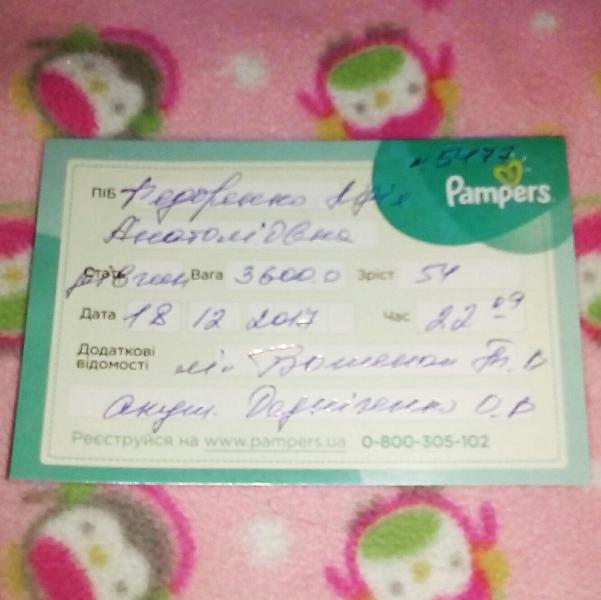 № 5477
Pampers
ПІБ Федоренко
Анатоліївна
Стать дівчин Вага 3600.0 Зріст 54
Дата 18 12 2017 Час 22 09
Додаткові відомості
акуш. О.В
Реєструйся на www.pampers.ua 0-800-305-102